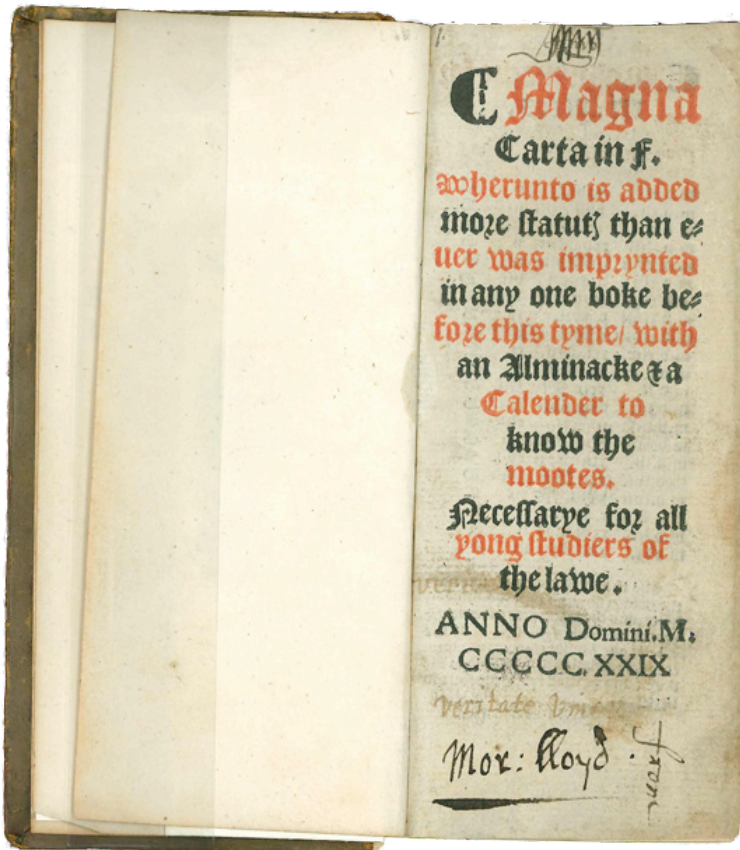 ¶ Magna
Carta in f.
wherunto is added
more statutꝫ than e⸗
uer was imprynted
in any one boke be⸗
fore this tyme/ with
an Alminacke & a
Calender to
know the
mootes.
Necessarye for all
yong studiers of
the lawe.
ANNO Domini.M.
CCCCC.XXIX
veritate
Mor: lloyd.
from